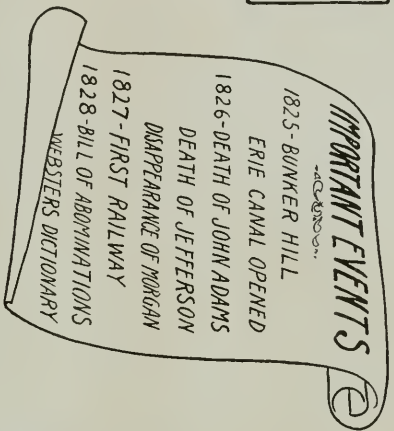 IMPORTANT EVENTS
1825-BUNKER HILL
ERIE CANAL OPENED
1826-DEATH OF JOHN ADAMS
DEATH OF JEFFERSON
DISAPPEARANCE OF MORGAN
1827-FIRST RAILWAY
1828-BILL OF ABOMINATIONS
WEBSTERS DICTIONARY